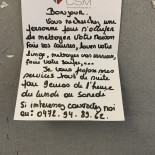 CSM
BONJOUR,
Vous recherchez une
personne pour s'occuper
de nettoyer votre maison
faire vos courses, laver votre
linge, nettoyer vos services,
faire votre vaisselle...
Je vous propose mes
services tout de suite
pour 9euros de l'heure
du lundi au samedi
Si intéressé contactez moi
au: 0472. 94. 83. 62.